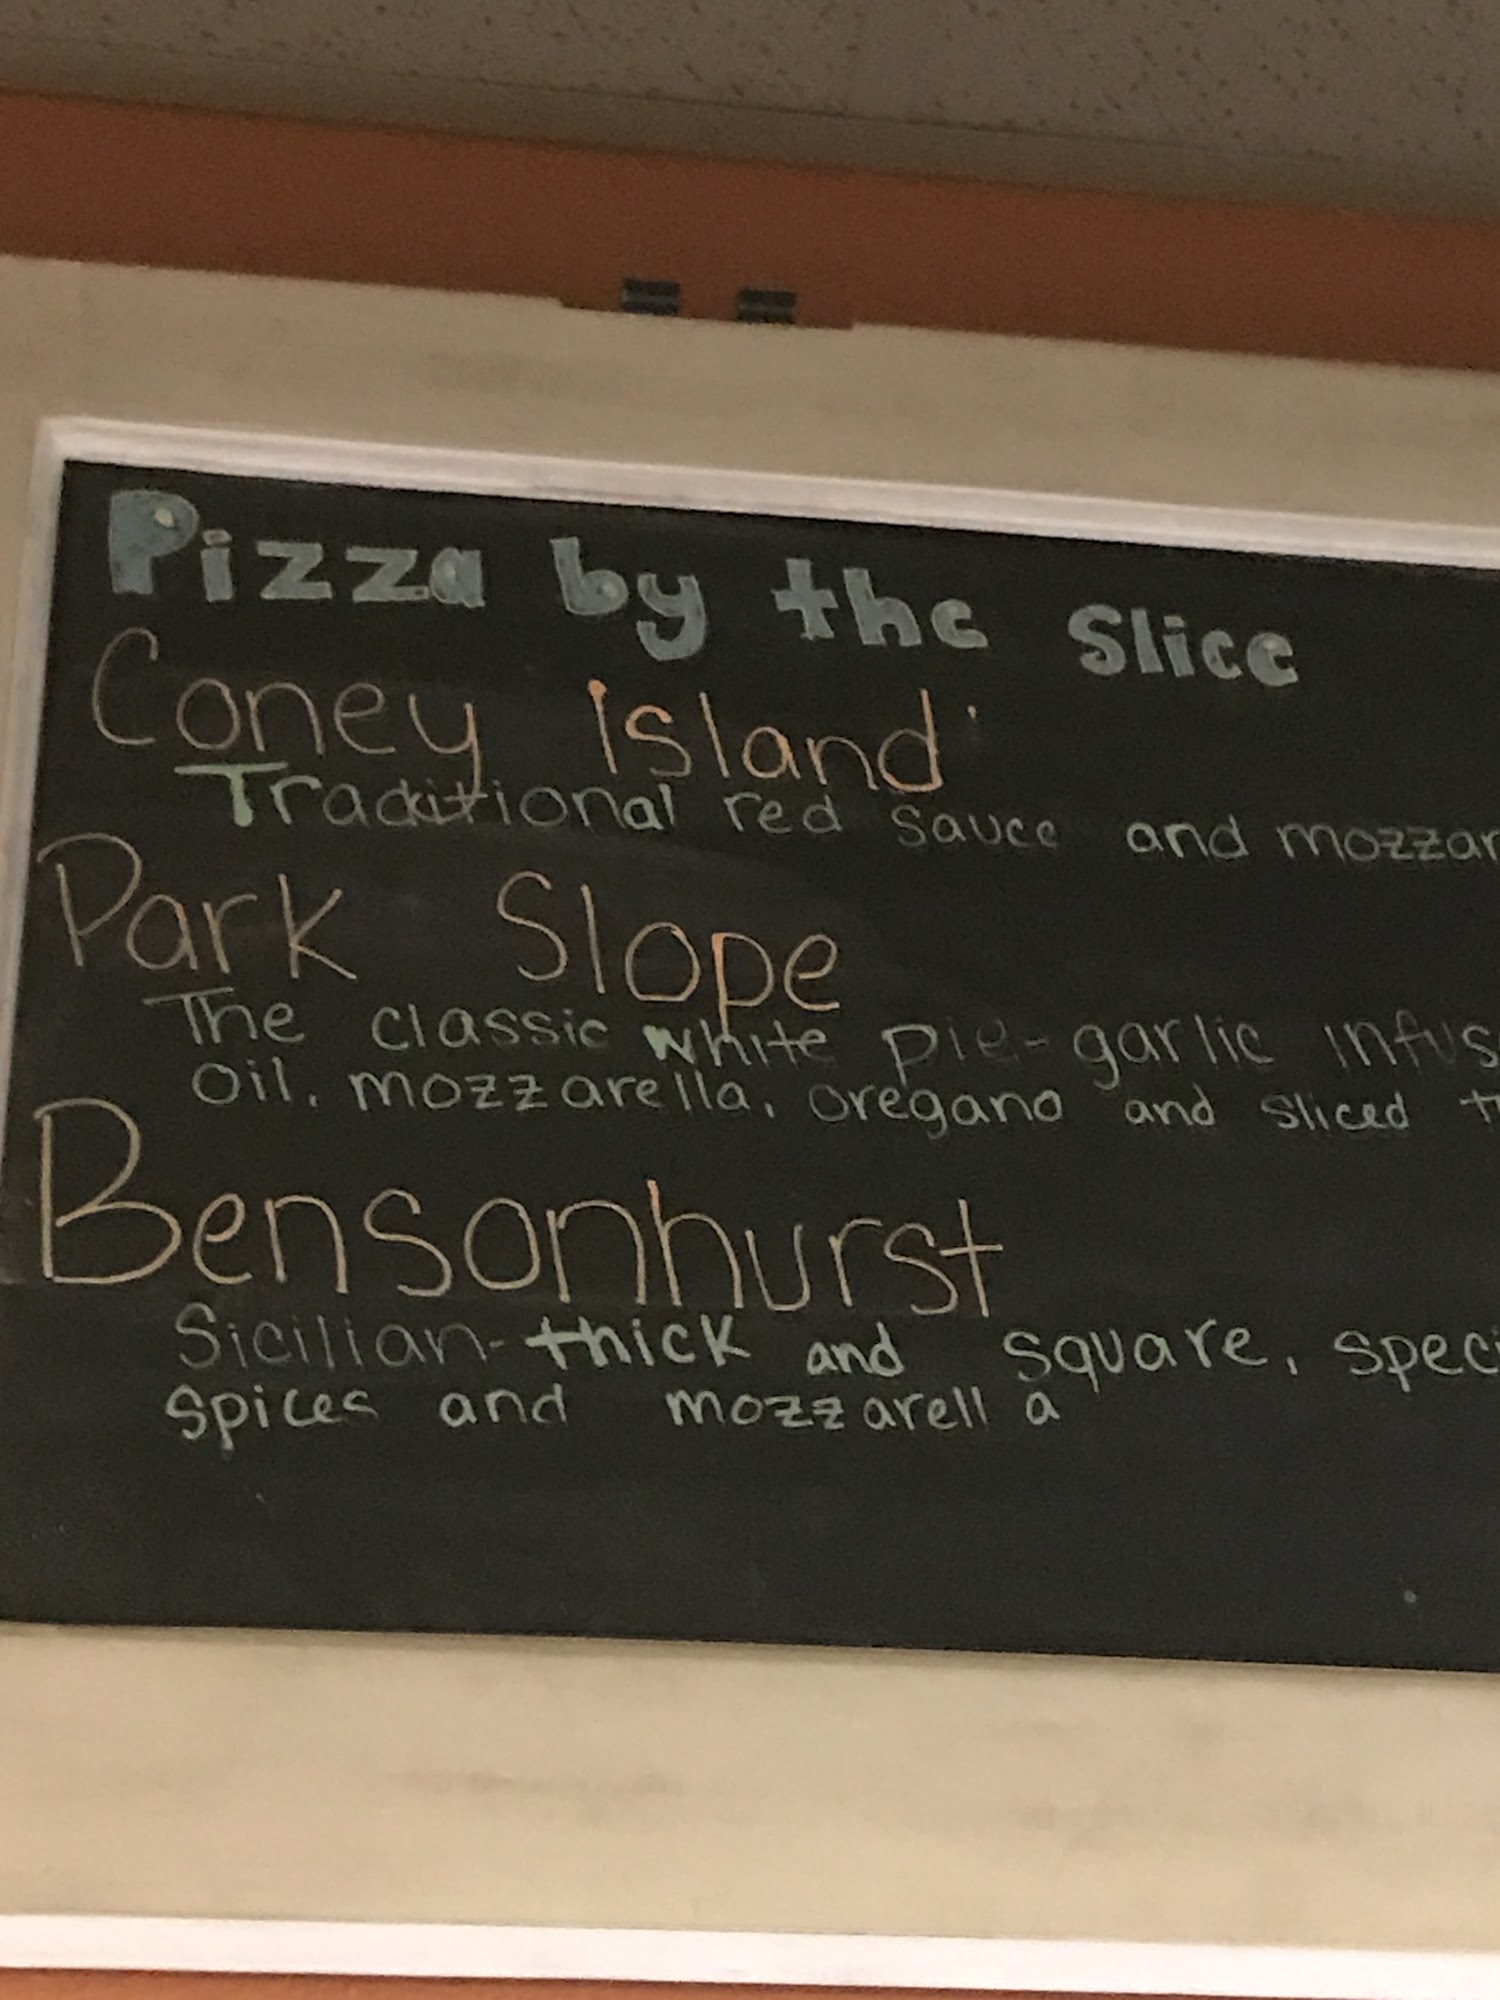 Pizza by the Slice
Coney Island
Traditional red sauce and mozzar
Park Slope
The classic white pie-garlic infus
oil, mozzarella, oregano and sliced t
Bensonhurst
Sicilian-thick and square, speci
spices and mozzarella